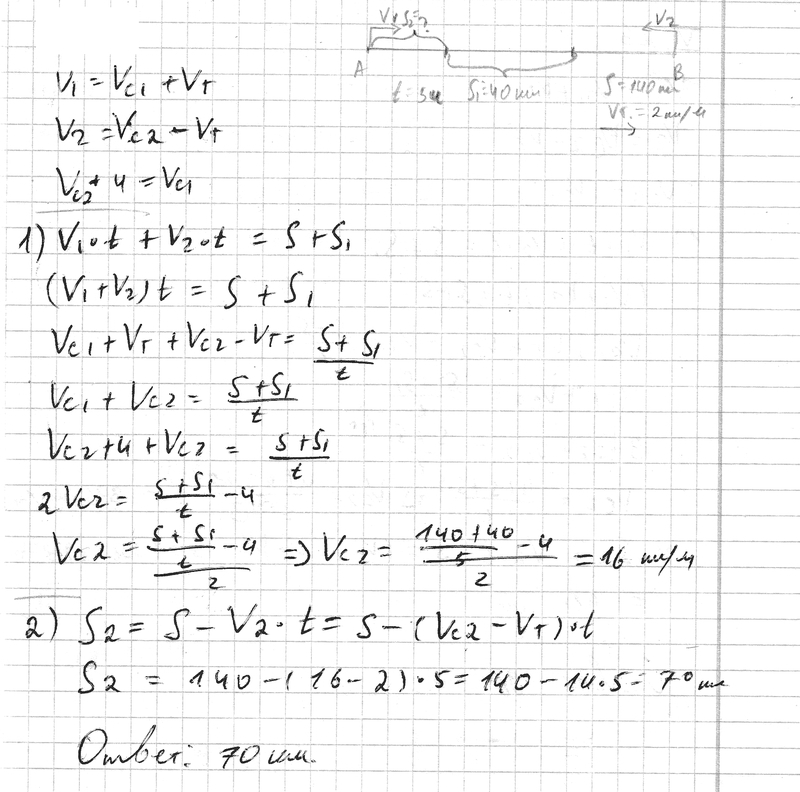 V₁ S₂=? V₂
A B
t=5ч S₁=40км S=140км
Vт.=2км/ч
V₁ = Vc₁ + Vт
V₂ = Vc₂ - Vт
Vc₂ + 4 = Vc₁
1) V₁·t + V₂·t = S + S₁
(V₁+V₂)t = S + S₁
Vc₁ + Vт + Vc₂ - Vт = (S + S₁)/t
Vc₁ + Vc₂ = (S+S₁)/t
Vc₂+4+Vc₂ = (S+S₁)/t
2Vc₂ = (S+S₁)/t - 4
Vc₂ = ((S+S₁)/t - 4)/2 => Vc₂ = ((140+40)/5 - 4)/2 = 16 км/ч
2) S₂ = S - V₂·t = S - (Vc₂ - Vт)·t
S₂ = 140 - (16-2)·5 = 140 - 14·5 = 70 км
Ответ: 70 км.